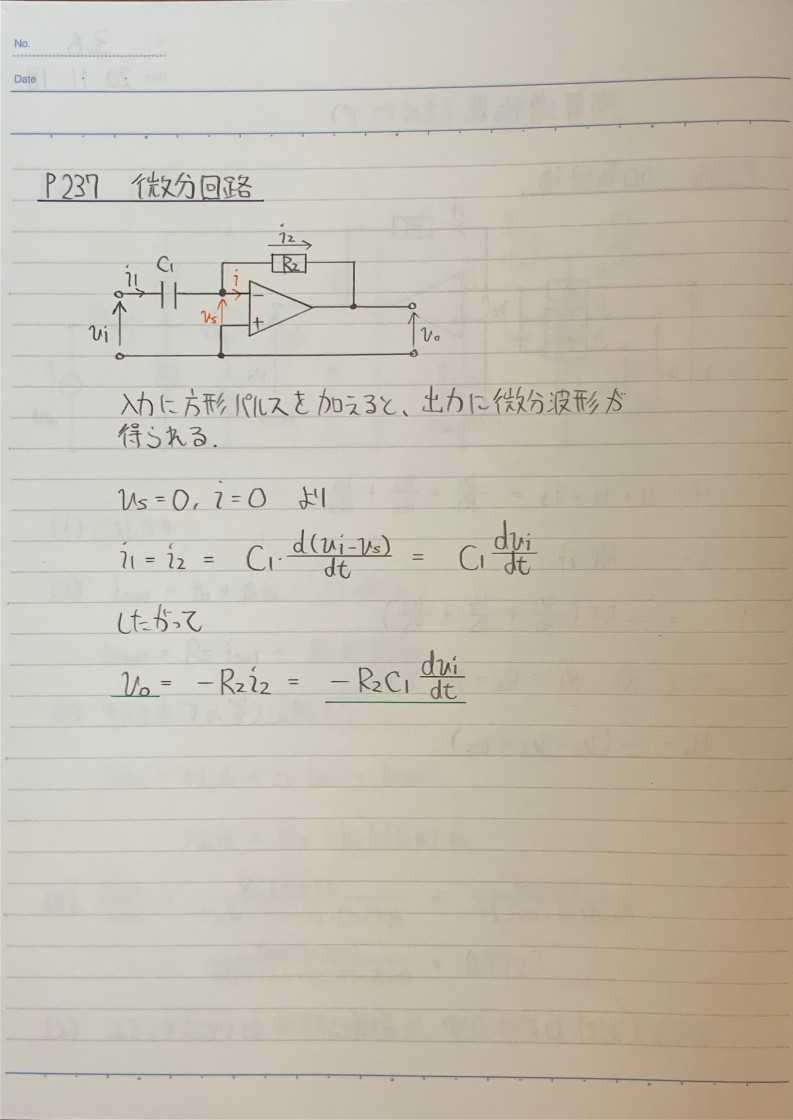 No.
Date
P237 微分回路
i₂
R₂
C₁
i₁
i
−
vs
+
vi
v₀
入力に方形パルスを加えると、出力に微分波形が
得られる.
vs=0, i=0 より
i₁ = i₂ = C₁・d(vi-vs)/dt = C₁ dvi/dt
したがって
v₀ = -R₂i₂ = -R₂C₁ dvi/dt